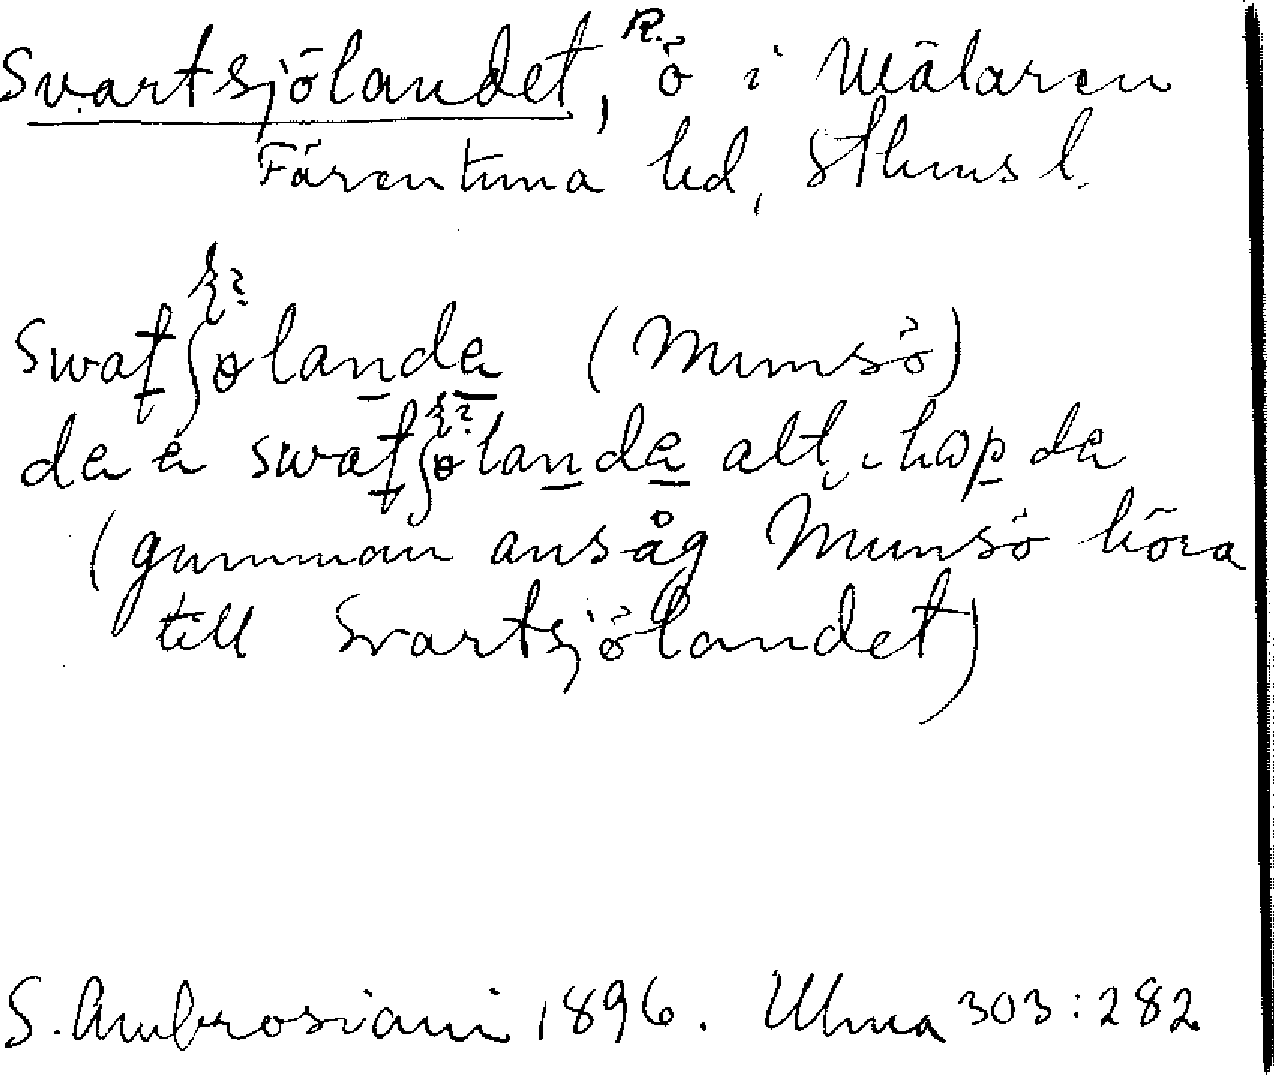 Svartsjölandet, R. ö i Mälaren
Färentuna hd, Sthms l.
swaʈʃɵlandɐ (Munsö)
swaʈʃɵlandɐ alt i hop
(gumman ansåg Munsö höra
till Svartsjölandet)
S. Ambrosiani 1896. Ulma 303:282